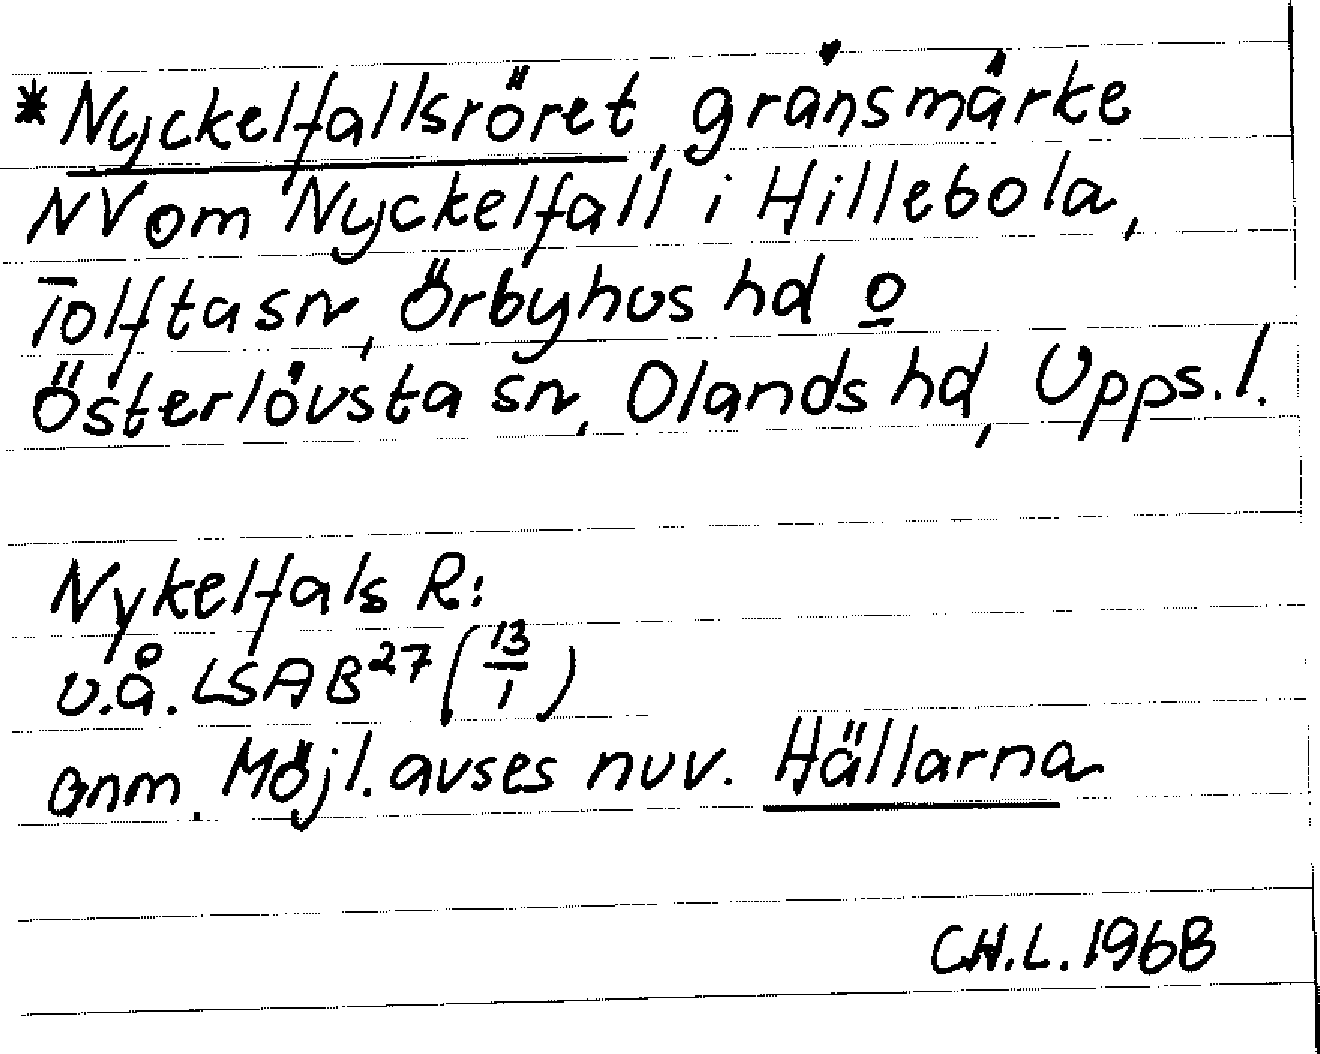 *Nyckelfallsröret, gränsmärke
NV om Nyckelfall i Hillebola,
Tolfta sn, Örbyhus hd o
Österlövsta sn, Olands hd, Upps. l.
Nykelfals R:
u.å. LSA B27 (13/1)
anm. Möjl. avses nuv. Hällarna
CH.L. 1968